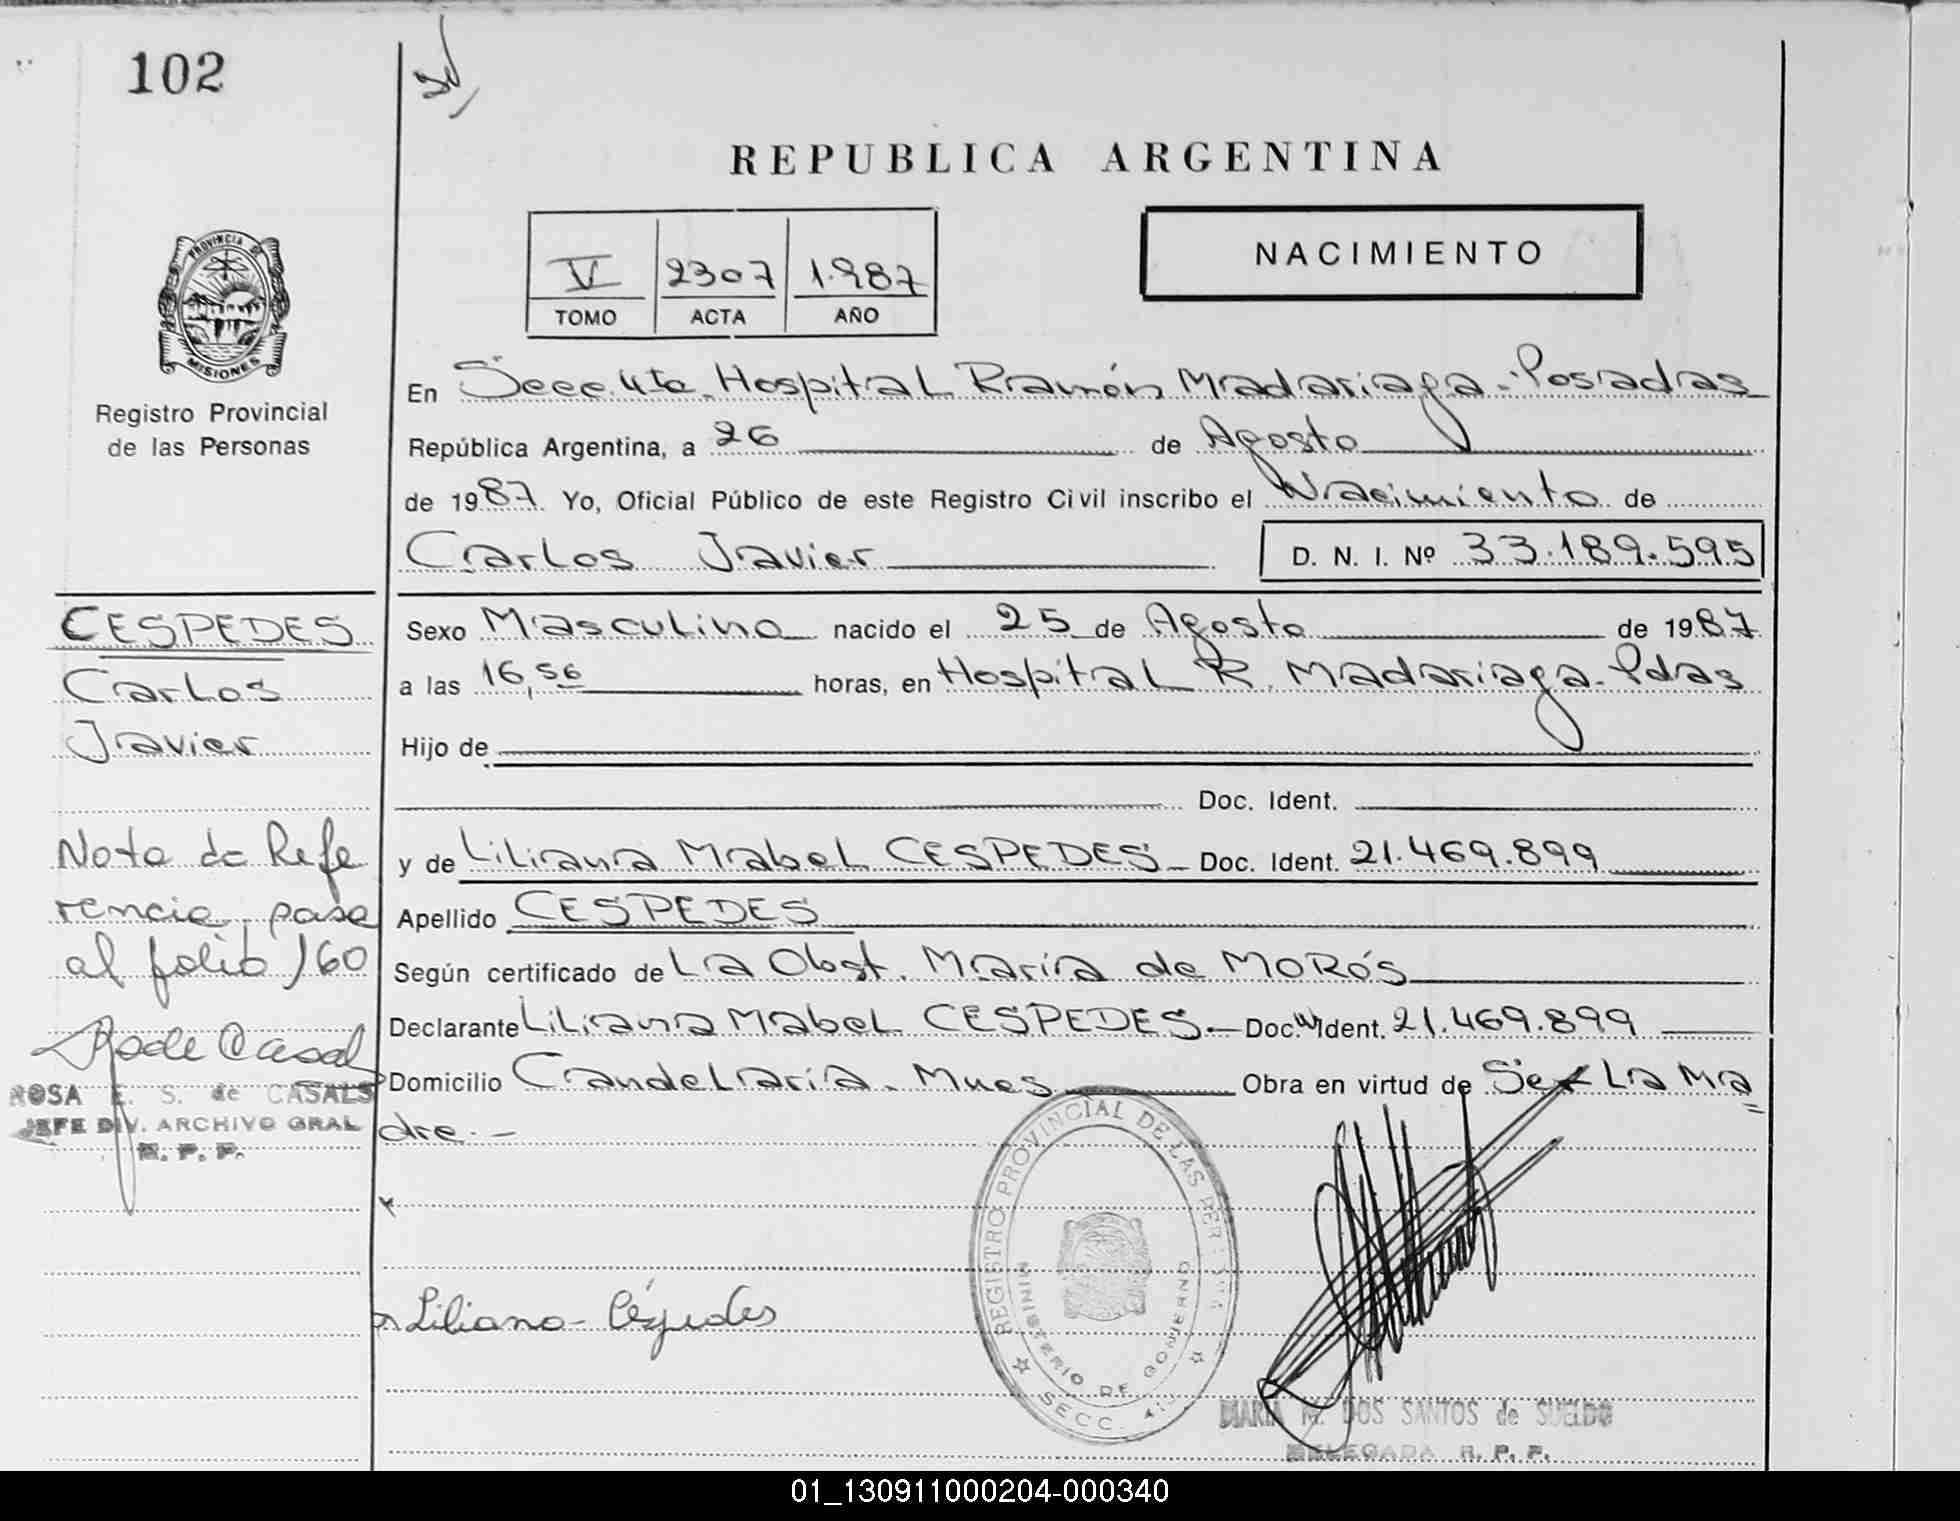 102
REPUBLICA ARGENTINA
V 2307 1.987
TOMO ACTA AÑO
NACIMIENTO
PROVINCIA DE
MISIONES
Registro Provincial
de las Personas
En Secc. 4ta. Hospital Ramón Madariaga - Posadas
República Argentina, a 26 de Agosto
de 1987 Yo, Oficial Público de este Registro Civil inscribo el Nacimiento de
Carlos Javier D. N. I. Nº 33.189.595
Sexo Masculino nacido el 25 de Agosto de 1987
a las 16,56 horas, en Hospital R. Madariaga - Pdas
Hijo de
Doc. Ident.
y de Liliana Mabel CESPEDES - Doc. Ident. 21.469.899
Apellido CESPEDES
Según certificado de La Obst. María de MOROS
Declarante Liliana Mabel CESPEDES - Doc. Ident. 21.469.899
Domicilio Candelaria - Mnes Obra en virtud de Ser La Ma
dre. -
CESPEDES
Carlos
Javier
Nota de Refe
rencia, pasa
al folio 160
ROSA E. S. de CASALS
JEFE DIV. ARCHIVO GRAL
R. P. P.
Liliana - Céspedes
REGISTRO PROVINCIAL DE LAS PERSONAS
MINISTERIO DE GOBIERNO
SECC. 4
MARIA M. DOS SANTOS de SUELDO
DELEGADA R. P. P.
01_130911000204-000340